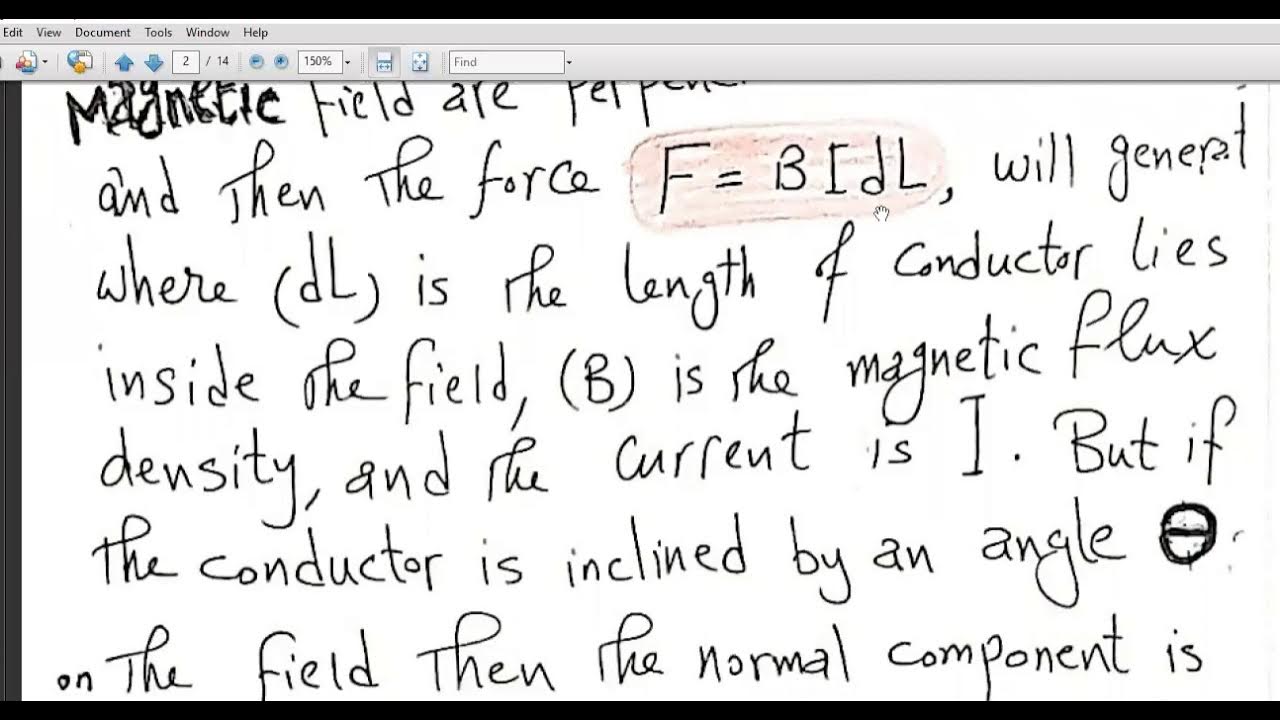 Edit View Document Tools Window Help
2 / 14 150% Find
Magnetic field are
and Then The force F = B I dL, will general
where (dL) is the length of conductor lies
inside the field, (B) is the magnetic flux
density, and the current is I. But if
the conductor is inclined by an angle θ
on The field Then the normal component is